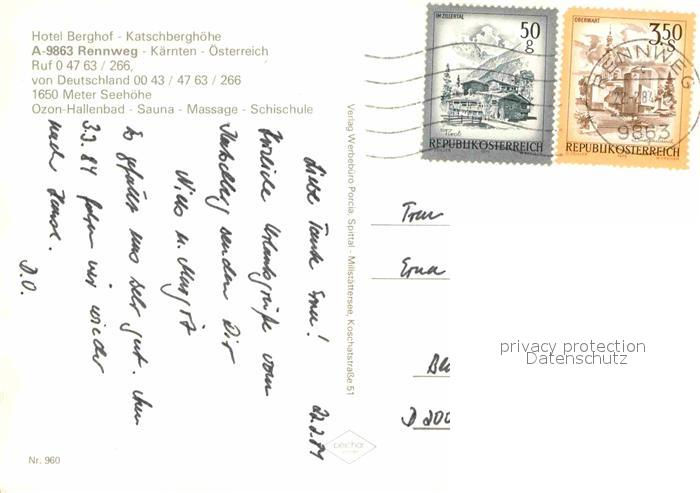 Hotel Berghof - Katschberghöhe
A-9863 Rennweg - Kärnten - Österreich
Ruf 0 47 63 / 266,
von Deutschland 00 43 / 47 63 / 266
1650 Meter Seehöhe
Ozon-Hallenbad - Sauna - Massage - Schischule
22.2.84
Liebe Tante Erna!
Herzliche Urlaubsgrüße vom
Katschberg senden Dir
Nils u. Margit
Es gefällt uns sehr gut. Am
3.3.84 fahren wir wieder
nach Hause.
D.O.
Nr. 960
Verlag Werbebüro Porcia, Spittal - Millstättersee, Koschatstraße 51
IM ZILLERTAL
50
g
Tirol
REPUBLIK ÖSTERREICH
OBERWART
3,50
S
REPUBLIK ÖSTERREICH
RENNWEG
9863
Frau
Erna
D 200
privacy protection
Datenschutz